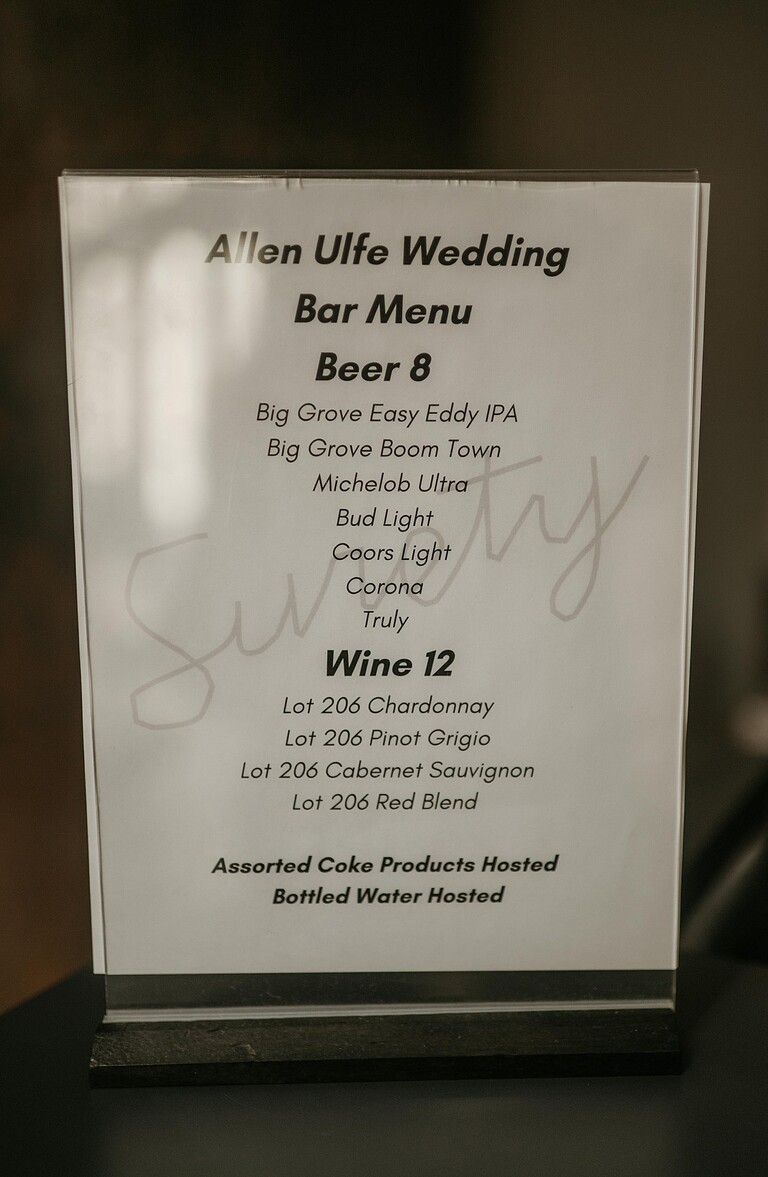 Allen Ulfe Wedding
Bar Menu
Beer 8
Big Grove Easy Eddy IPA
Big Grove Boom Town
Michelob Ultra
Bud Light
Coors Light
Corona
Truly
Wine 12
Lot 206 Chardonnay
Lot 206 Pinot Grigio
Lot 206 Cabernet Sauvignon
Lot 206 Red Blend
Assorted Coke Products Hosted
Bottled Water Hosted